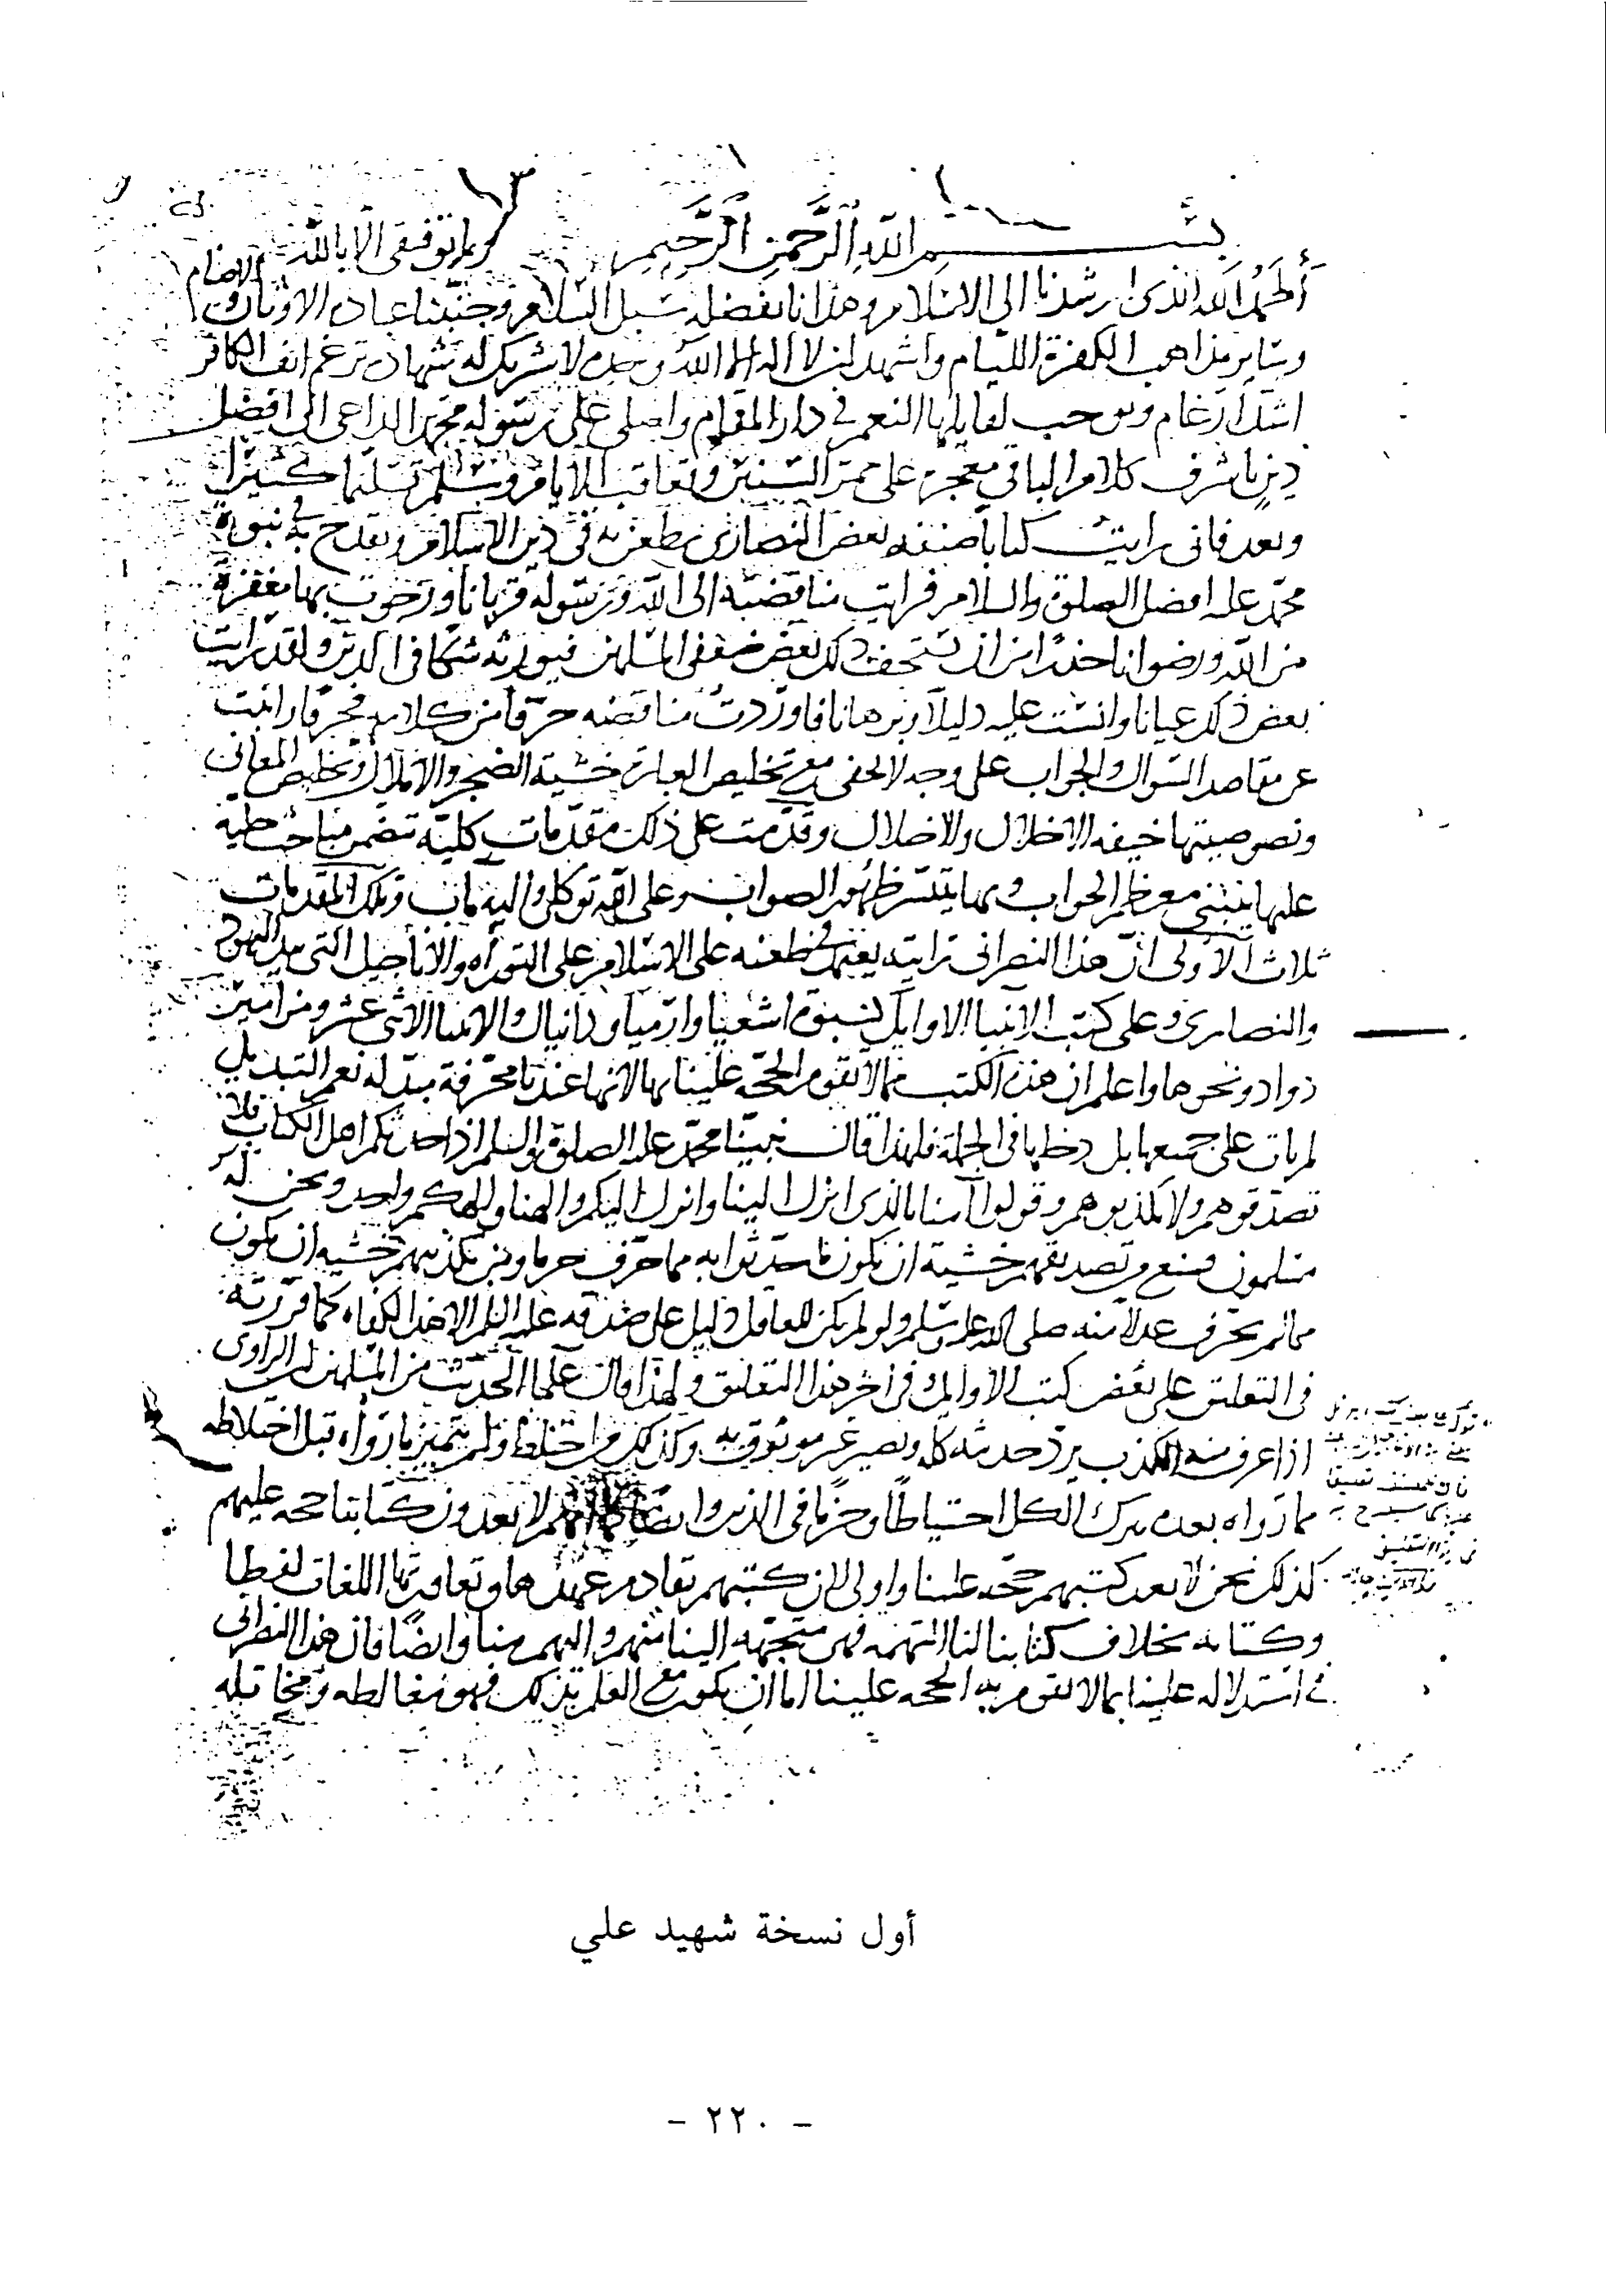 بسم الله الرحمن الرحيم وما توفيقي الا بالله
ألحمد الله الذى ارشدنا الى الاسلام وهدانا بفضله سبل السلام وجنبنا عبادة الاوثان والاصنام
وساير مذاهب الكفرة الليام واشهد ان لا اله الا الله وحده لا شريك له شهادة ترغم انف الكافر
اشد ارغام وتوجب لقايلها النعم في دار المقام واصلي على رسوله محمد الداعي الى افضل
دين باشرف كلام الباقي معجزه على ممر السنين وتعاقب الايام وسلم تسليما كثيرا
وبعد فانى رايت كتابا صنفه بعض النصارى يطعن به في دين الاسلام ويقدح به في نبوة
محمد عليه افضل الصلوة والسلام فرايت مناقضته الى الله ورسوله قربانا ورجوت بها مغفرة
من الله ورضوانا حذرا من ان يستخف ذلك بعض ضعفى المسلمين فيورثه شكا في الدين ولقد رايت
بعض ذلك عيانا وانشت عليه دليلا وبرهانا فاوردت مناقضه حرفا من كلامه فحرفا رانبت
عن مقاصد السوال والجواب على وجه لا يخفى مع تخليص العبارة خشية الضجر والاملال وتخليص المعاني
ونصوصيتها خيفه الاخلال والاضلال وقدمت على ذلك مقدمات كلية تضمن مباحث
عليها ينبني معظم الجواب وبها يتيسر ظهور الصواب وعلى الله توكلى واليه مآب وتلك المقدمات
ثلاث الأولى ان هذا النصرانى رايته يعتمد في طعنه على الاسلام على التوراه والاناجيل التى بيد اليهود
والنصارى وعلى كتب الانبيا الاوايل كنبوة اشعيا وارميا ودانيال والانبيا الاثنى عشر ومزامير
دواد ونحوها واعلم ان هذه الكتب مما لا تقوم الحجة علينا بها لانها عندنا محرفة مبدله نعم التبديل
لم يات على جميعها بل دخلها في الجملة فلهذا قال نبينا محمد عليه الصلوة والسلم اذا حدثكم اهل الكتاب فلا
تصدقوهم ولا تكذبوهم وقولوا آمنا بالذى انزل الينا وانزل اليكم والهنا والهكم واحد ونحن له
مسلمون فمنع من تصديقهم خشية ان يكون ما حدثوا به مما حرف حرما ومن تكذيبهم خشيه ان يكون
مما لم يحرف عدلا منه صلى الله عليه وسلم ولو لم يكن للعاقل دليل على صدقه عليه السلم الا هذا لكفاه كما قررته
فى التعليق على بعض كتب الاوايل في آخر هذا التعليق ولهذا قال علما الحديث من المسلمين ان الراوى
اذا عرف منه الكذب يرد حديثه كله ويصير غير موثوق به وكذلك من اختلط ولم يتميز ما رواه قبل اختلاطه
مما رواه بعده يترك الكل احتياطا وحزما فى الدين وايضا لا يعدون كتابنا حجه عليهم
كذلك نحن لا نعد كتبهم حجة علينا واولى لان كتبهم تقادم عهدها وتعاورتها اللغات لفظا
وكتابه بخلاف كتابنا لنا التهمه فهى متجهه الينا منهم واليهم منا وايضا فان هذا النصرانى
فى استدلاله علينا بما لا تقوم به الحجه علينا اما ان يكون مع العلم بذلك فهو مغالطه ومخاتله
أول نسخة شهيد علي
- ٢٢٠ -